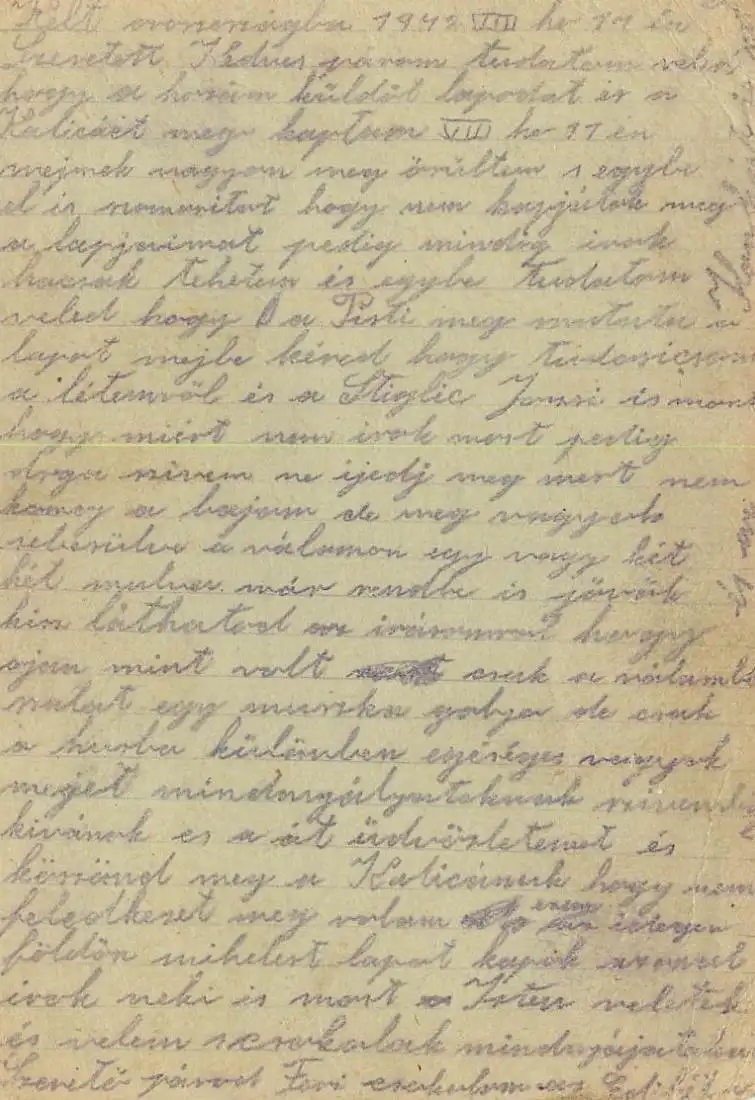 Kelt oroszországba 1942 VIII hó 11 én
Szeretett Kedves párom tudatom veled
hogy a hozám küldöt lapodat és a
Katicáét meg kaptam VIII hó 11 én
mejnek nagyon meg örültem s egybe
el is szomoritot hogy nem kapjátok meg
a lapjaimat pedig mindig irok
hacsak tehetem és egybe tudatom
veled hogy a Pisti meg mutatta a
lapot mejbe kéred hogy tudosiccson
a létemröl és a Stiglic Jonsi is mond
hogy miért nem irok most pedig
drga szivem ne ijedj meg mert nem
a bajom de meg vagyok
sebesülve a válamon egy vagy két
hét mulva már rendbe is jövök
hisz láthatod az irásomrol hogy
ojan mint volt csak a válamba
szalat egy muszka golyo de csak
a husba különben egéséges vagyok
mejet mindnyályatoknak szivemböl
kivánok es a át üdvözletemet és
köszönd meg a Katicának hogy nem
feledkezet meg rolam ezen az idegen
földön mihelest lapot kapok azonnal
irok neki is most a Isten veletek
és velem scsokolak mindnyájatokat
Szeretö párod Feri csokolom az Edikét
és